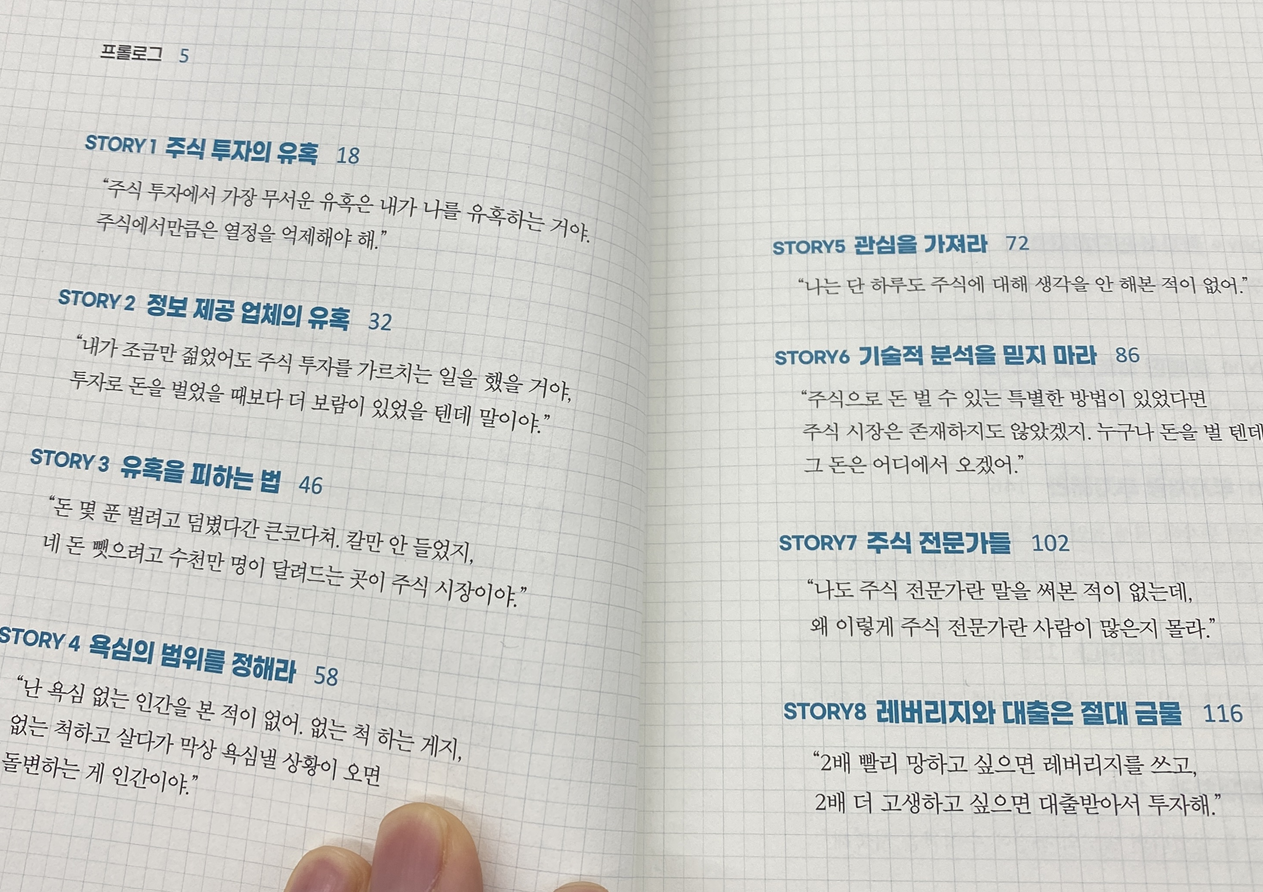 프롤로그 5
STORY 1 주식 투자의 유혹 18
“주식 투자에서 가장 무서운 유혹은 내가 나를 유혹하는 거야.
주식에서만큼은 열정을 억제해야 해.”
STORY 2 정보 제공 업체의 유혹 32
“내가 조금만 젊었어도 주식 투자를 가르치는 일을 했을 거야,
투자로 돈을 벌었을 때보다 더 보람이 있었을 텐데 말이야.”
STORY 3 유혹을 피하는 법 46
“돈 몇 푼 벌려고 덤볐다간 큰코다쳐. 칼만 안 들었지,
네 돈 뺏으려고 수천만 명이 달려드는 곳이 주식 시장이야.”
STORY 4 욕심의 범위를 정해라 58
“난 욕심 없는 인간을 본 적이 없어. 없는 척 하는 게지,
없는 척하고 살다가 막상 욕심낼 상황이 오면
돌변하는 게 인간이야.”
STORY5 관심을 가져라 72
“나는 단 하루도 주식에 대해 생각을 안 해본 적이 없어.”
STORY6 기술적 분석을 믿지 마라 86
“주식으로 돈 벌 수 있는 특별한 방법이 있었다면
주식 시장은 존재하지도 않았겠지. 누구나 돈을 벌 텐데
그 돈은 어디에서 오겠어.”
STORY7 주식 전문가들 102
“나도 주식 전문가란 말을 써본 적이 없는데,
왜 이렇게 주식 전문가란 사람이 많은지 몰라.”
STORY8 레버리지와 대출은 절대 금물 116
“2배 빨리 망하고 싶으면 레버리지를 쓰고,
2배 더 고생하고 싶으면 대출받아서 투자해.”